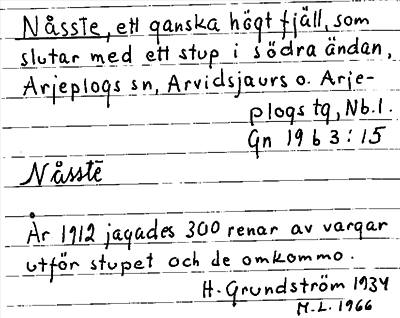 Nåsste, ett ganska högt fjäll, som
slutar med ett stup i södra ändan,
Arjeplogs sn, Arvidsjaurs o. Arje-
plogs tg, Nb.l.
Gn 19 b 3:15
Nåsstē
År 1912 jagades 300 renar av vargar
utför stupet och de omkommo.
H. Grundström 1934
M.L. 1966